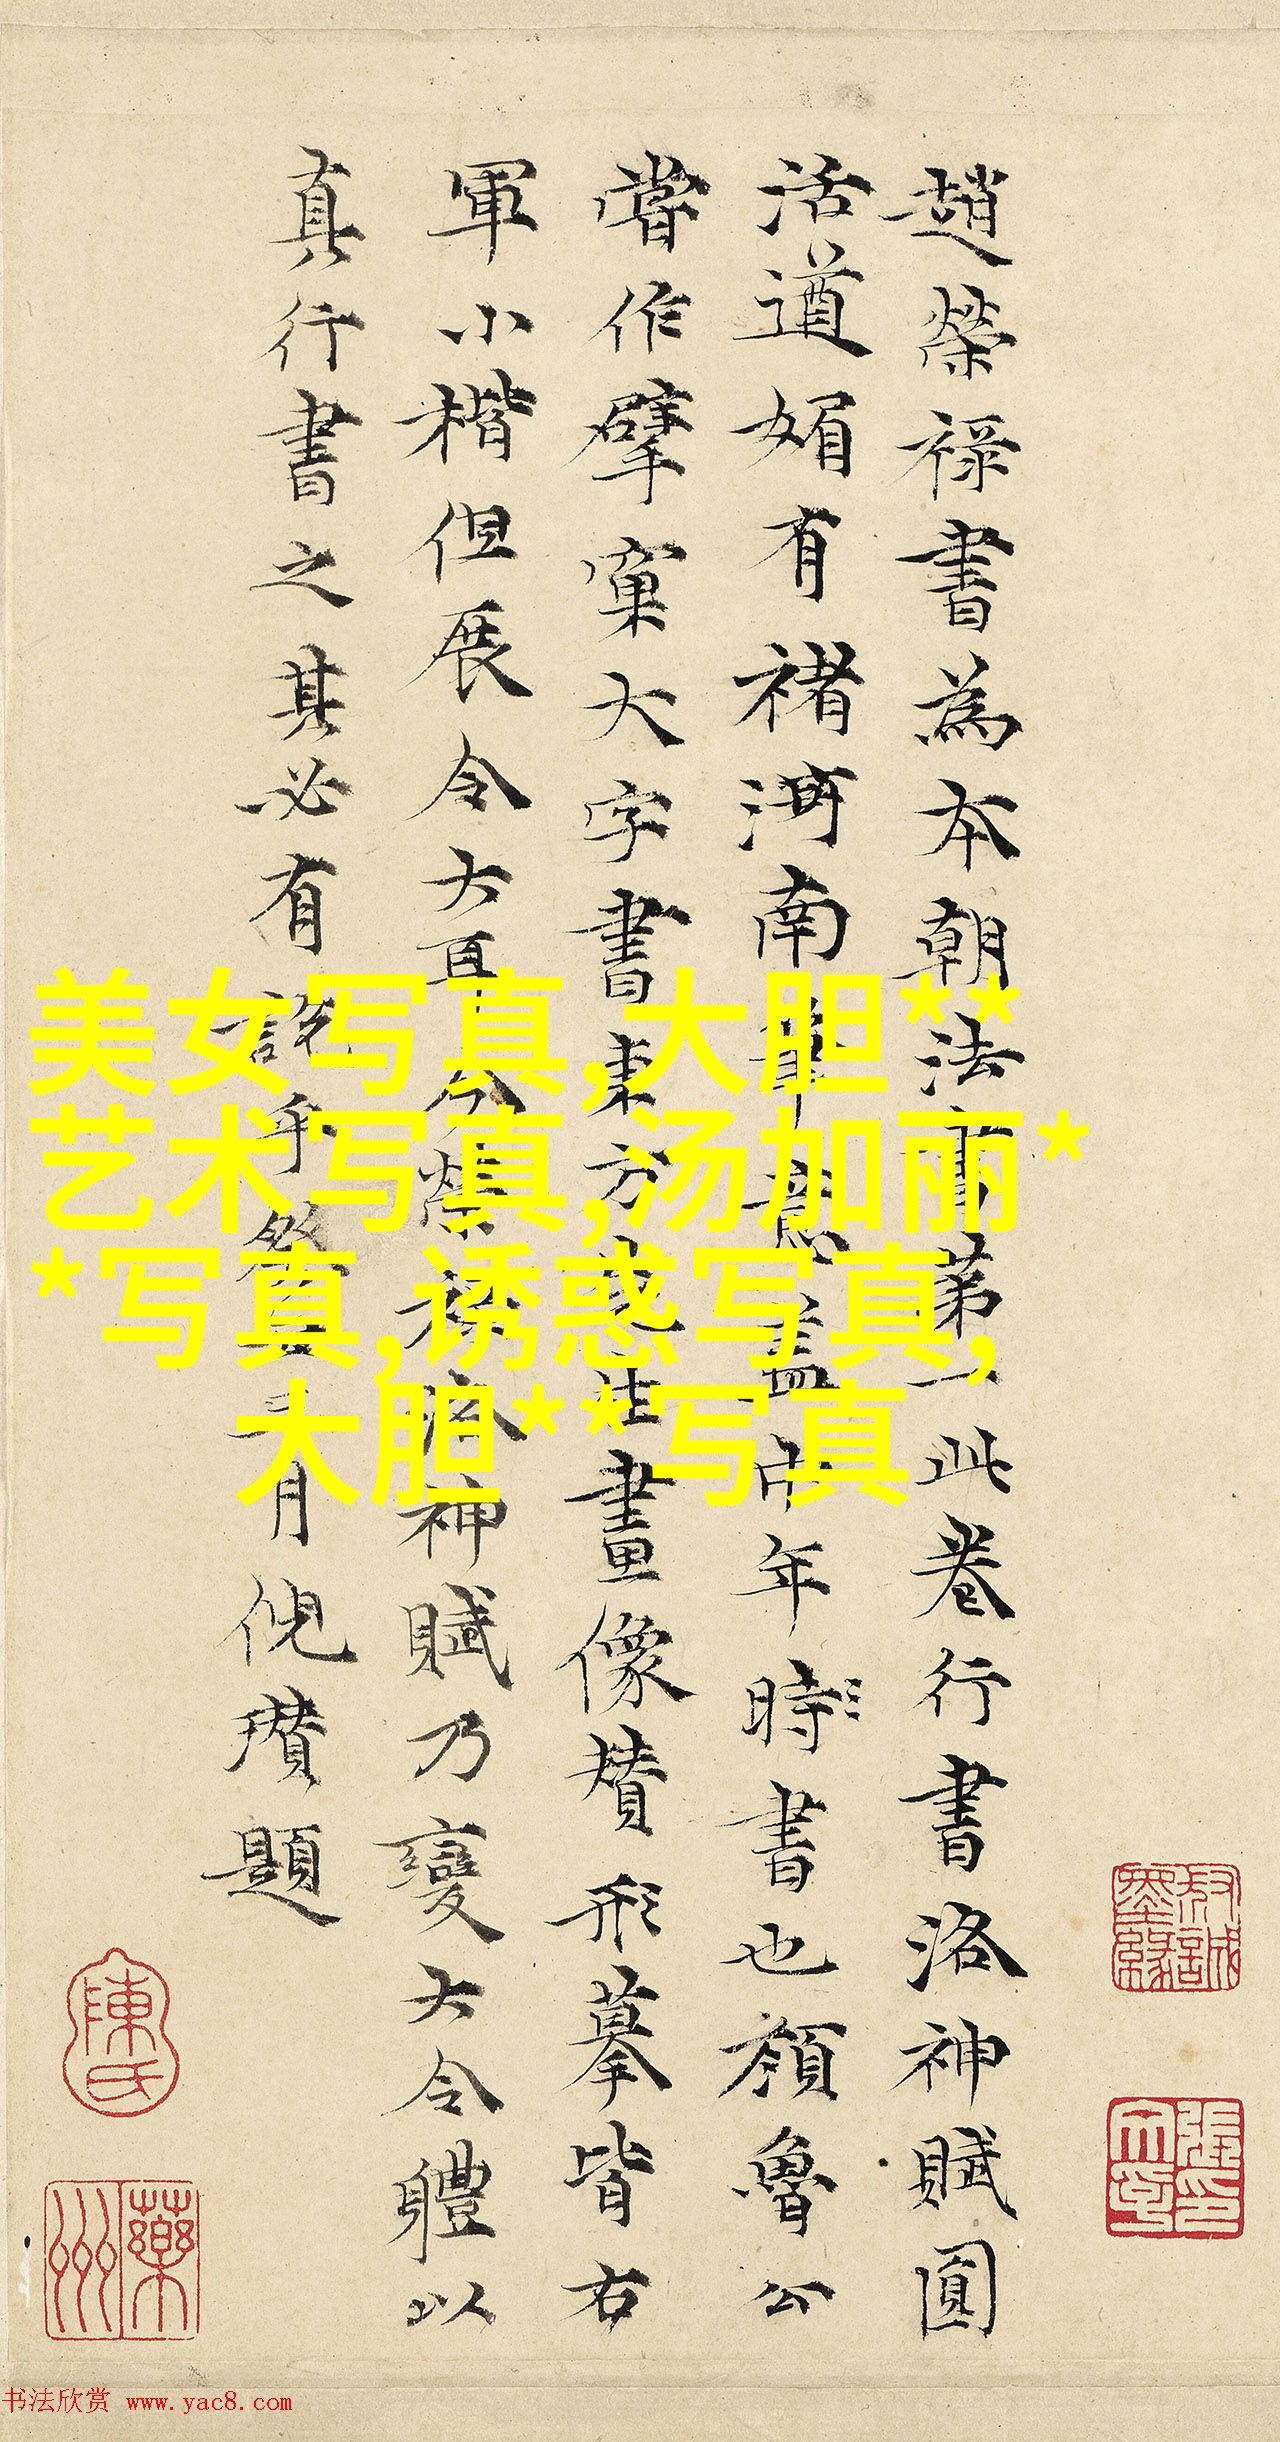 趙榮祿書為本朝法書第一此卷行書洛神賦圓
活遒媚有褚河南筆意蓋中年時書也顏魯公
嘗作擘窠大字書東方生畫像贊形摹皆右
軍小楷但展令大耳今榮祿洛神賦乃變大令體以
真行書之其必有說乎月倪瓚題
美女写真,大胆**
艺术写真,汤加丽*
*写真,诱惑写真,
大胆**写真
陳氏
书法欣赏 www.yac8.com